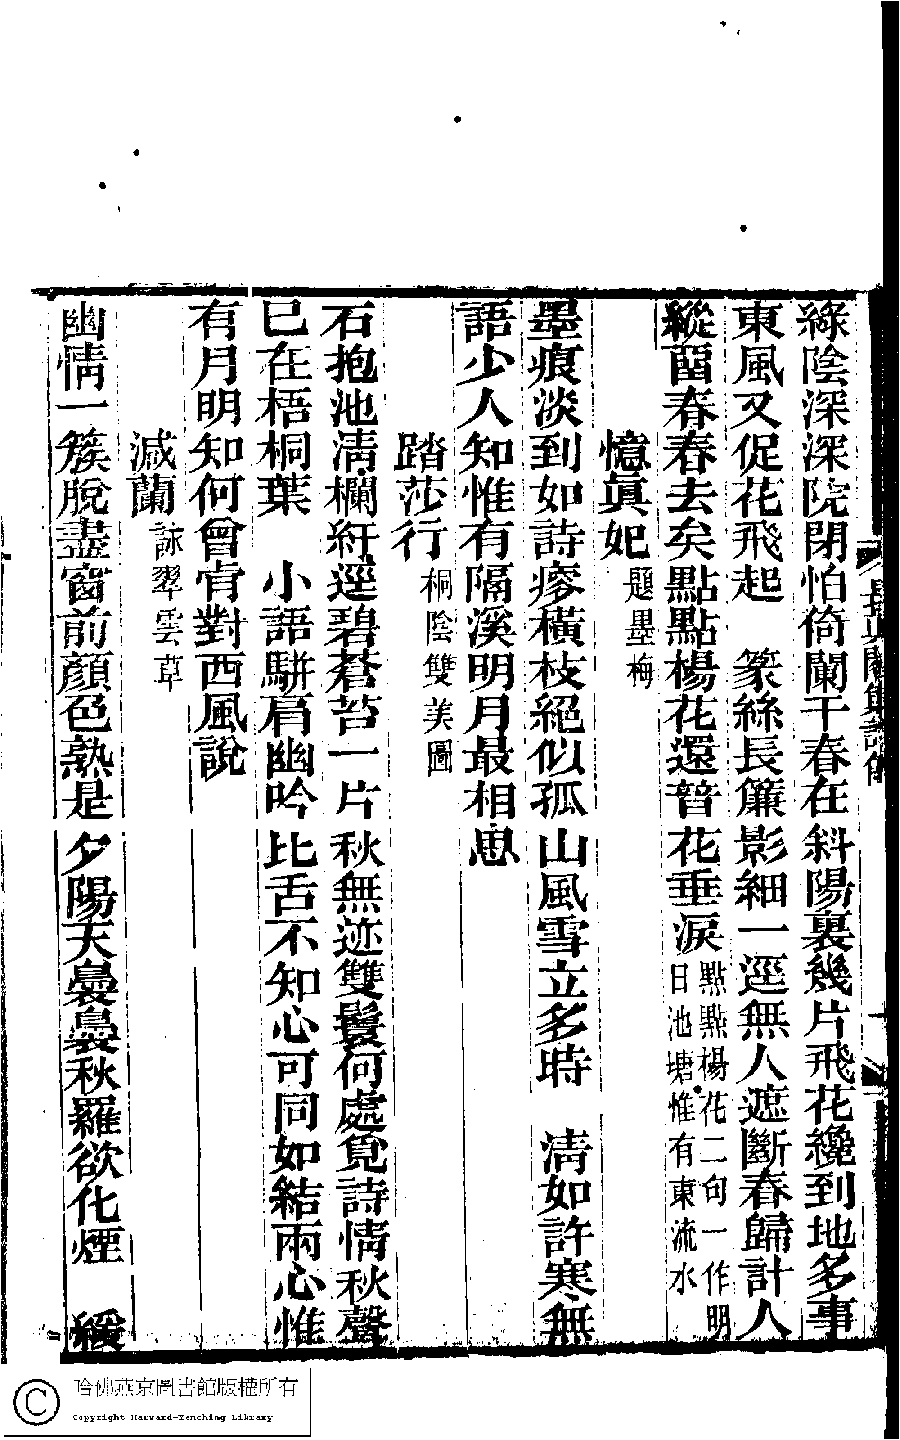 綠陰深深院閉怕倚闌干春在斜陽裏幾片飛花纔到地多事
東風又促花飛起　篆絲長簾影細一逕無人遮斷春歸計人
縱留春春去矣點點楊花還替花垂淚點點楊花二句一作明
日池塘惟有東流水
憶眞妃題墨梅
墨痕淡到如詩瘮橫枝絕似孤山風雪立多時　淸如許寒無
語少人知惟有隔溪明月最相思
踏莎行桐陰雙美圖
石抱池淸欄紆逕碧蒼苔一片秋無迹雙鬟何處覓詩情秋聲
已在梧桐葉　小語駢肩幽吟比舌不知心可同如結兩心惟
有月明知何曾肯對西風說
減蘭詠翠雲草
幽情一簇脫盡窗前顏色熟是夕陽天裊裊秋羅欲化煙　緩
哈佛燕京圖書館版權所有
Copyright Harvard-Yenching Library